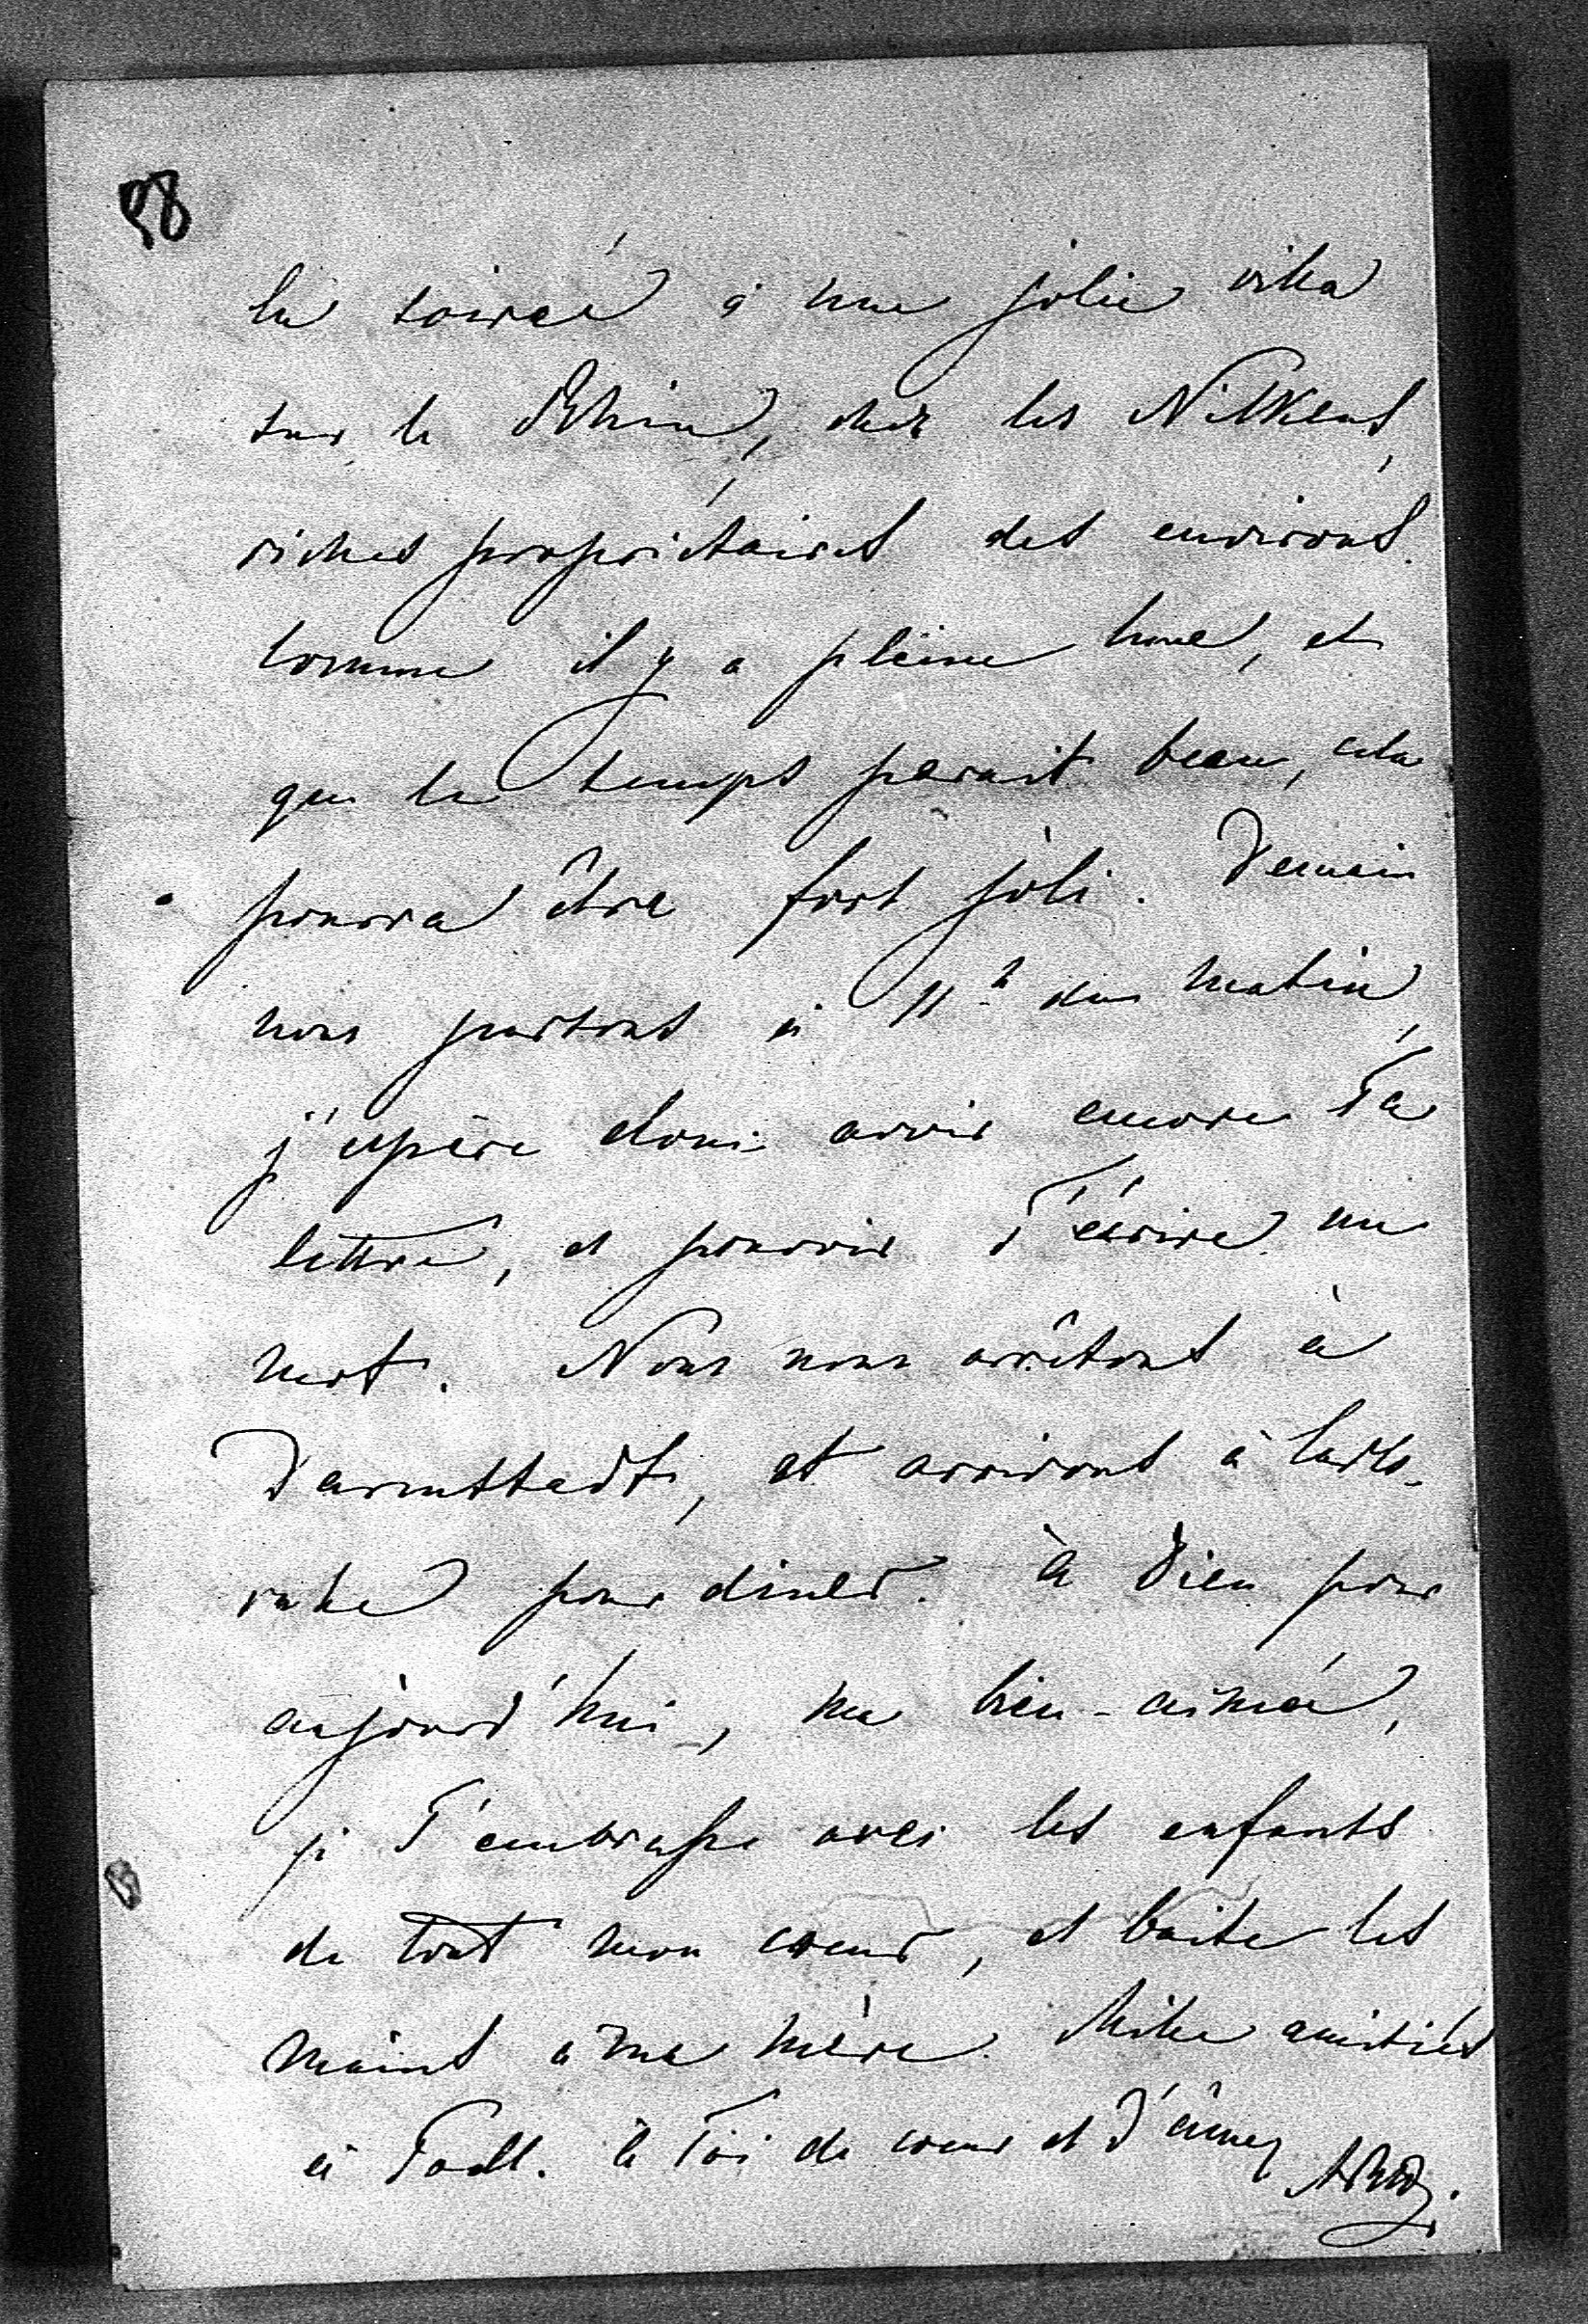 98
la soirée à une jolie villa
sur le Rhin, chez les Nilkens,
riches propriétaires des environs.
Comme il y a pleine lune, et
que le temps parait beau, cela
pourra être fort joli. Demain
nous partons à 11 h du matin,
j'espère donc avoir encore Ta
lettre, et pouvoir T'écrire un
mot. Nous nous arrêtons à
Darmstadt, et arrivons à Carls-
ruhe pour diner. à Dieu pour
aujourd'hui, ma bien-aimée,
je T'embrasse avec les enfants
de tout mon coeur, et baise les
mains à ma mère. Mille amitiés
à à Toi de coeur et d'âme,